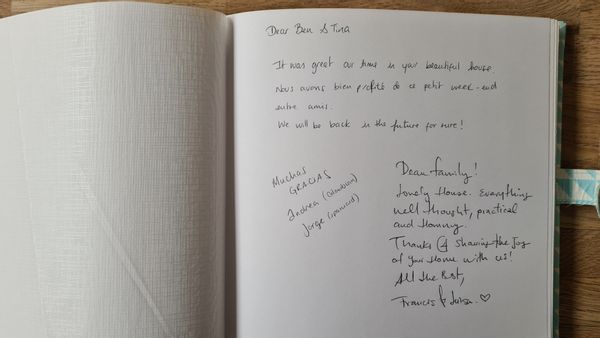 Dear Ben & Tina
It was great our time in your beautiful house.
Nous avons bien profité de ce petit week-end
entre amis.
We will be back in the future for sure!
Muchas
GRACIAS
Andrea (Colombian)
Jorge (spaniard)
Dear family!
Lovely House. Everything
well thought, practical
and Homey.
Thanks 4 sharing the Joy
of your Home with us!
All the Best,
Francis & Luisa. ♡